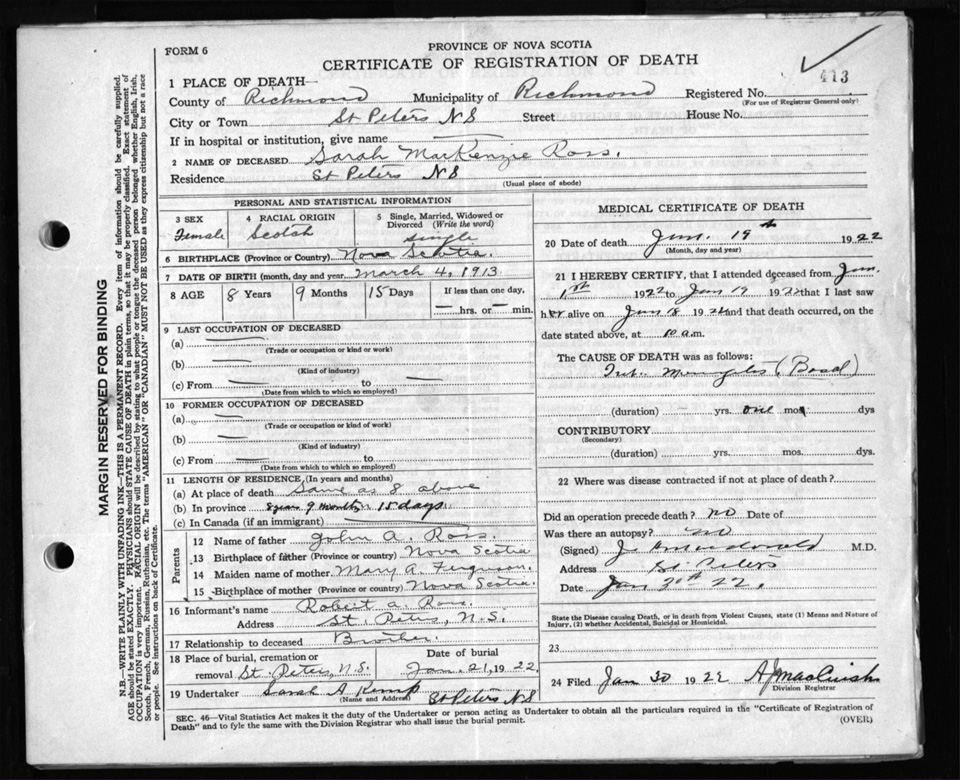 FORM 6
PROVINCE OF NOVA SCOTIA
CERTIFICATE OF REGISTRATION OF DEATH
413
1 PLACE OF DEATH—
County of Richmond Municipality of Richmond Registered No.
(For use of Registrar General only)
City or Town St Peters NS Street House No.
If in hospital or institution, give name
2 NAME OF DECEASED Sarah MacKenzie Ross.
Residence St Peters NS
(Usual place of abode)
PERSONAL AND STATISTICAL INFORMATION
3 SEX Female
4 RACIAL ORIGIN Scotch
5 Single, Married, Widowed or Divorced (Write the word) Single
6 BIRTHPLACE (Province or Country) Nova Scotia.
7 DATE OF BIRTH (month, day and year) March 4, 1913
8 AGE 8 Years 9 Months 15 Days If less than one day, — hrs. or — min.
9 LAST OCCUPATION OF DECEASED
(a)
(Trade or occupation or kind or work)
(b)
(Kind of industry)
(c) From to
(Date from which to which so employed)
10 FORMER OCCUPATION OF DECEASED
(a)
(Trade or occupation or kind of work)
(b)
(Kind of industry)
(c) From to
(Date from which to which so employed)
11 LENGTH OF RESIDENCE (In years and months)
(a) At place of death Same as 8 above
(b) In province 8 years 9 months 15 days
(c) In Canada (if an immigrant)
Parents
12 Name of father John A. Ross.
13 Birthplace of father (Province or country) Nova Scotia
14 Maiden name of mother Mary A. Ferguson.
15 Birthplace of mother (Province or country) Nova Scotia.
16 Informant's name Robert A. Ross.
Address St. Peters, N.S.
17 Relationship to deceased Brother.
18 Place of burial, cremation or removal St. Peters, N.S. Date of burial Jan. 21, 1922.
19 Undertaker Sarah A Kemp St Peters NS
(Name and Address)
MEDICAL CERTIFICATE OF DEATH
20 Date of death Jan. 19th 1922
(Month, day and year)
21 I HEREBY CERTIFY, that I attended deceased from Jan.
1st 1922 to Jan 19 1922 that I last saw
her alive on Jan 18 1922 and that death occurred, on the
date stated above, at 10 a.m.
The CAUSE OF DEATH was as follows:
(duration) yrs. one mos dys
CONTRIBUTORY
(Secondary)
(duration) yrs. mos. dys.
22 Where was disease contracted if not at place of death?
Did an operation precede death? no Date of
Was there an autopsy? no
(Signed) M.D.
Address St. Peters
Date Jan 20th 22.
State the Disease causing Death, or in death from Violent Causes, state (1) Means and Nature of
Injury, (2) whether Accidental, Suicidal or Homicidal.
23
24 Filed Jan 20 1922
Division Registrar
SEC. 46—Vital Statistics Act makes it the duty of the Undertaker or person acting as Undertaker to obtain all the particulars required in the "Certificate of Registration of
Death" and to fyle the same with the Division Registrar who shall issue the burial permit.
(OVER)
MARGIN RESERVED FOR BINDING
N.B.—WRITE PLAINLY WITH UNFADING INK—THIS IS A PERMANENT RECORD. Every item of information should be carefully supplied.
AGE should be stated EXACTLY. PHYSICIANS should STATE CAUSE OF DEATH in plain terms, so that it may be properly classified. Exact statement of
OCCUPATION is very important. RACIAL ORIGIN will be described by stating to what people or tongue the deceased person belonged whether English, Irish,
Scotch, French, German, Russian, Ruthenian, etc. The terms "AMERICAN" OR "CANADIAN" MUST NOT BE USED as they express citizenship but not a race
or people. See instructions on back of Certificate.